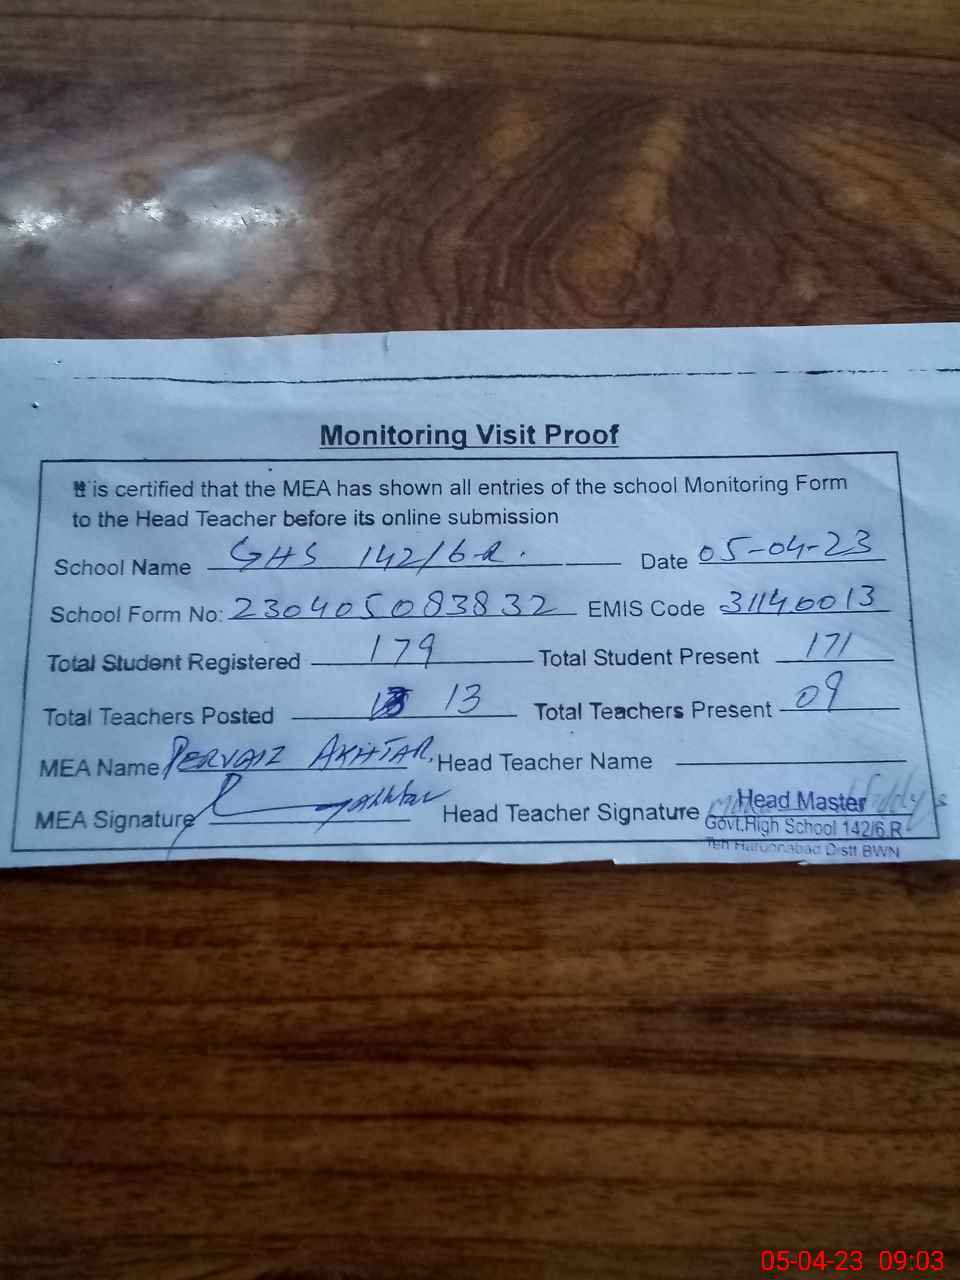 Monitoring Visit Proof
It is certified that the MEA has shown all entries of the school Monitoring Form
to the Head Teacher before its online submission
School Name GHS 142/6-R. Date 05-04-23
School Form No: 230405083832 EMIS Code 31140013
Total Student Registered 179 Total Student Present 171
Total Teachers Posted 13 Total Teachers Present 09
MEA Name PERVAIZ AKHTAR, Head Teacher Name
MEA Signature Head Teacher Signature Head Master
Govt.High School 142/6.R
Teh Harunnabad Distt BWN
05-04-23 09:03